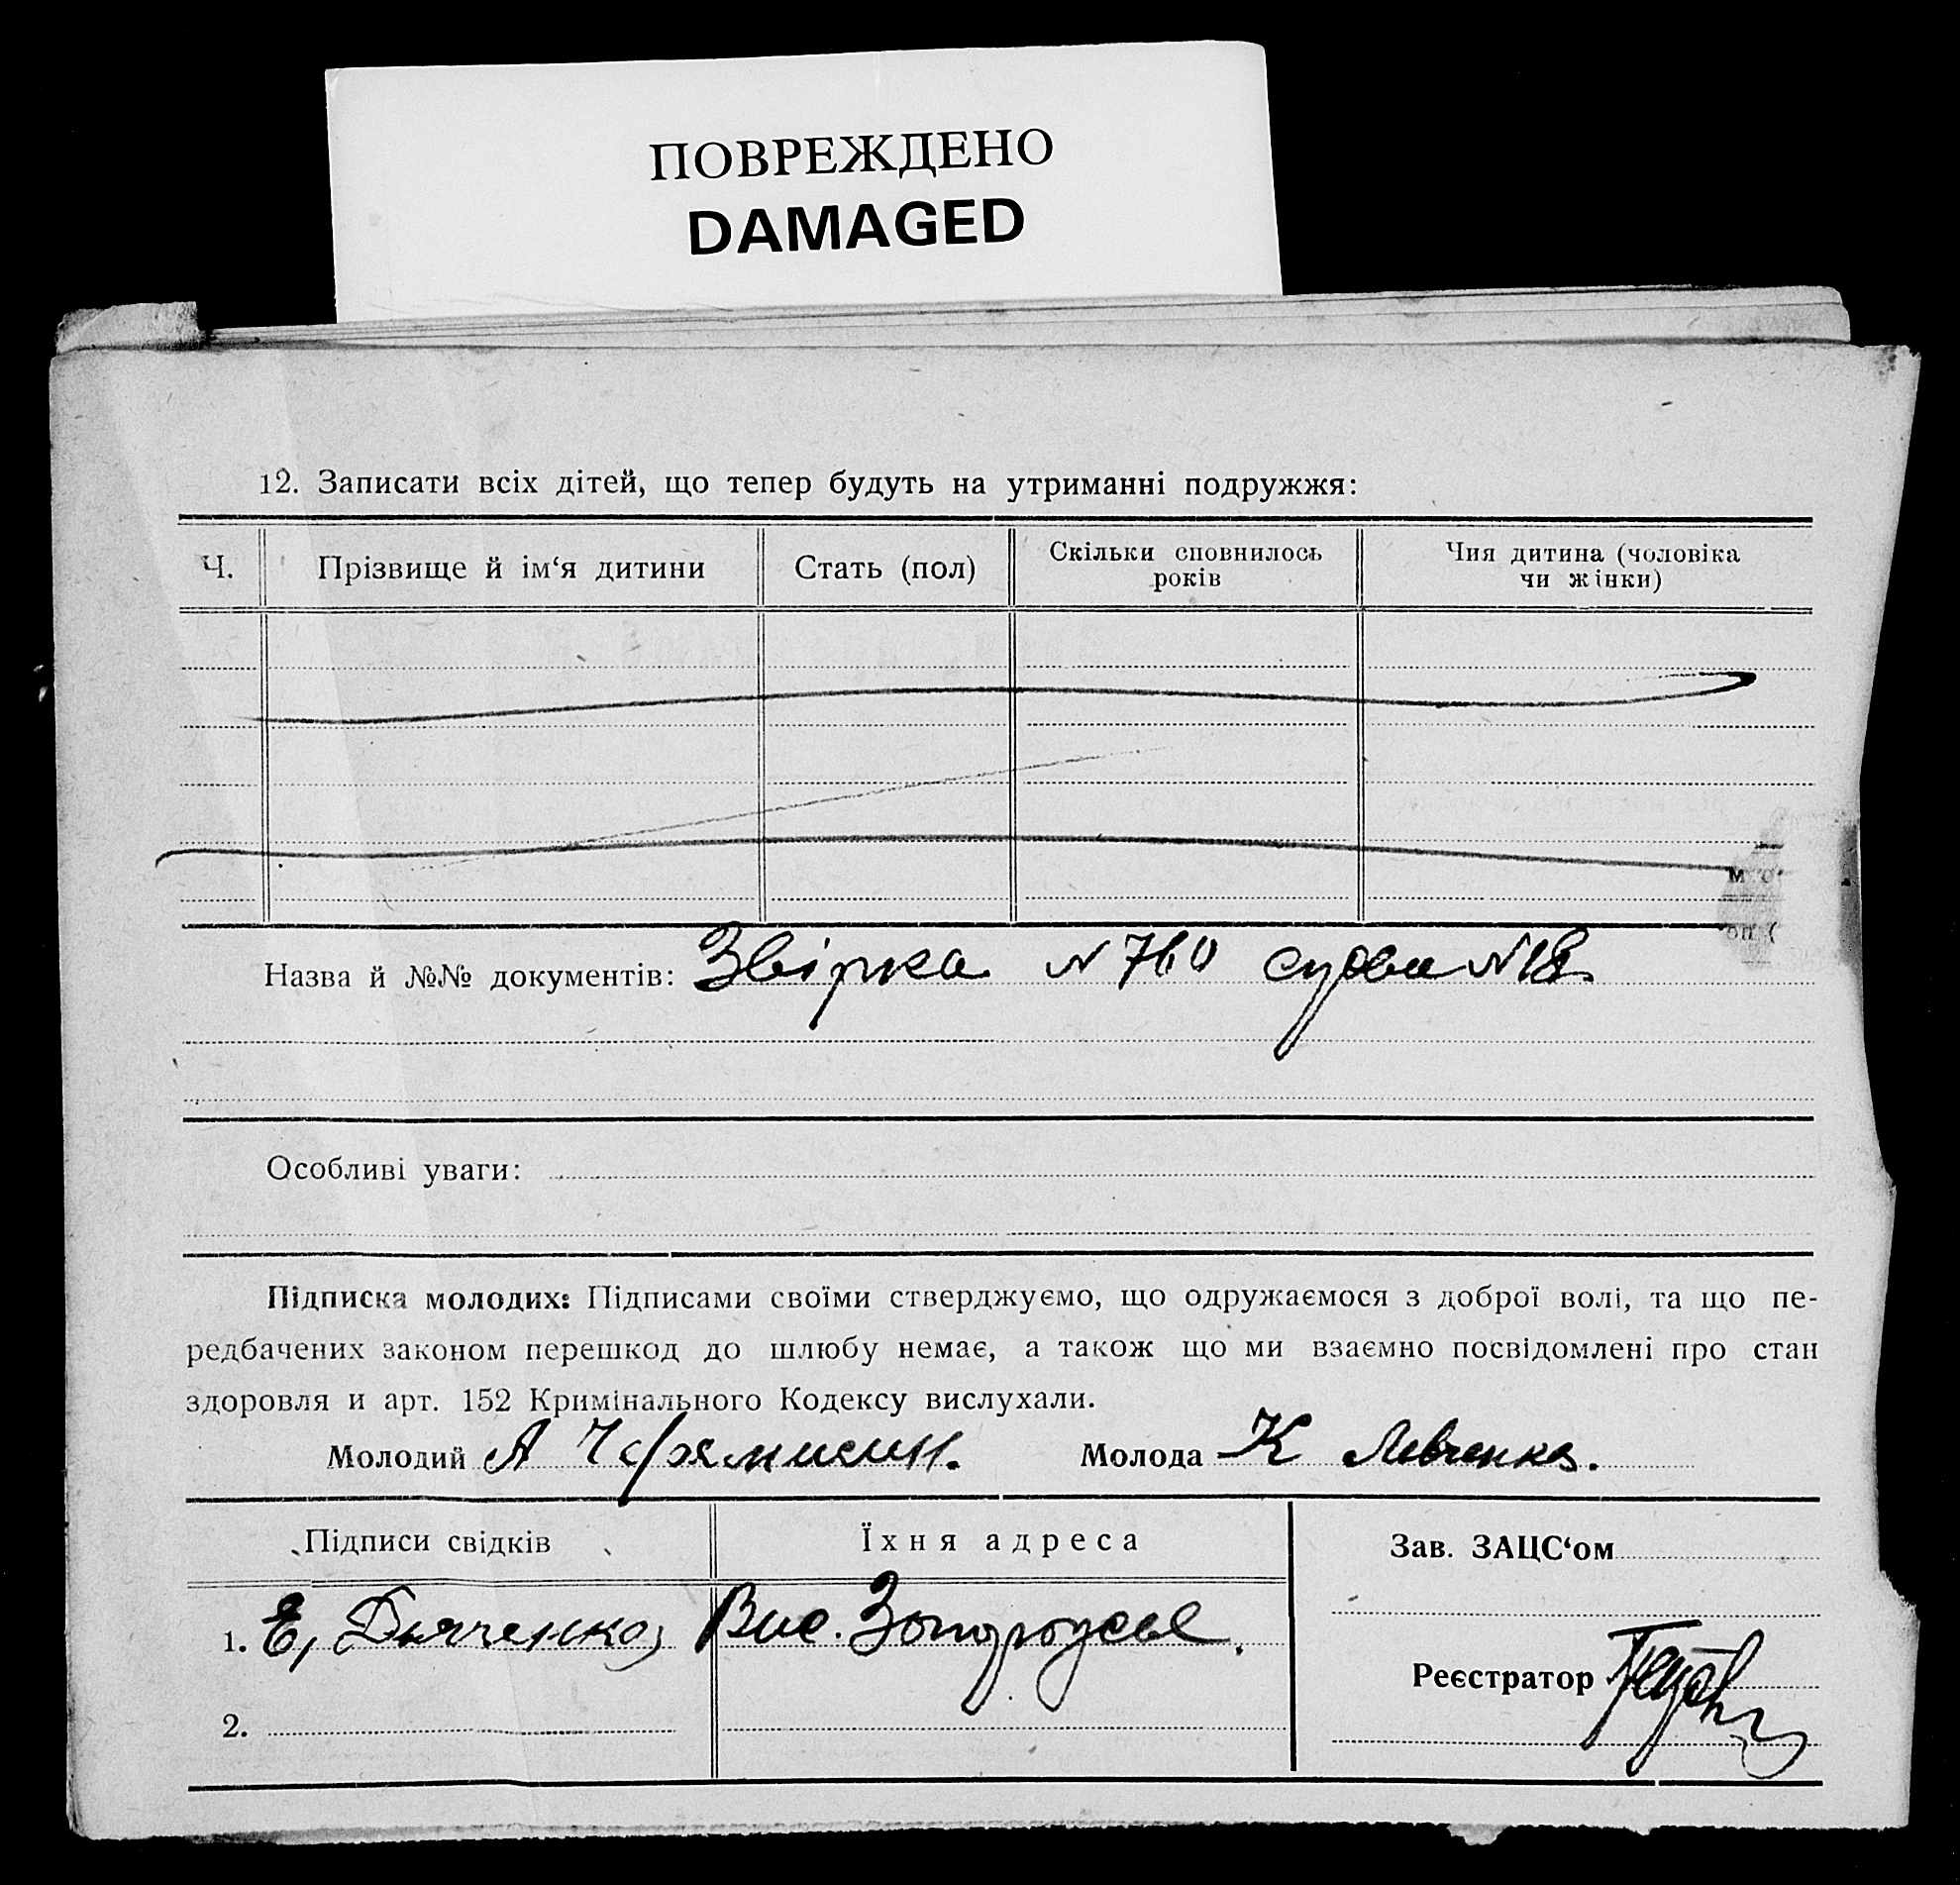 ПОВРЕЖДЕНО
DAMAGED
12. Записати всіх дітей, що тепер будуть на утриманні подружжя:
Ч. Прізвище й ім‘я дитини Стать (пол) Скільки сповнилось років Чия дитина (чоловіка чи жінки)
Назва й №№ документів: Звірка N 760 N 18
Особливі уваги:
Підписка молодих: Підписами своїми стверджуємо, що одружаємося з доброї волі, та що пе-
редбачених законом перешкод до шлюбу немає, а також що ми взаємно посвідомлені про стан
здоровля и арт. 152 Кримінального Кодексу вислухали.
Молодий А Молода К Левченко.
Підписи свідків Їхня адреса Зав. ЗАЦС‘ом
1. Е, Дьяченко, Вис.
Реєстратор
2.